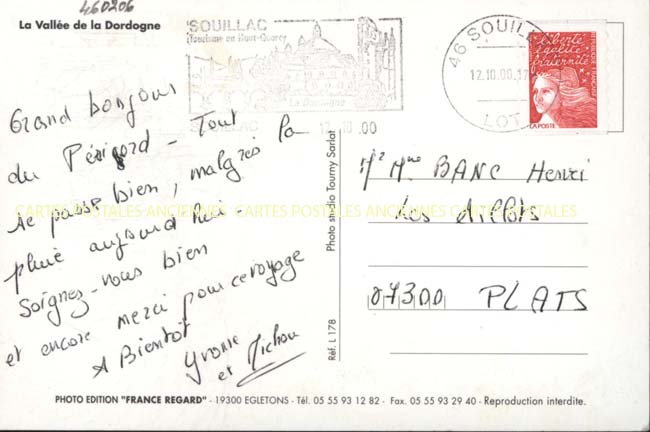 460206
La Vallée de la Dordogne
SOUILLAC
Tourisme en Haut-Quercy
La Dordogne
SOUILLAC 12.10.00
46 SOUILL
12.10.00
LOT
liberté
égalité
fraternité
LA POSTE
Grand bonjour
du Périgord - Tout
se passe bien, malgrés la
pluie aujourd hui -
Soignez-vous bien
et encore merci pour ce voyage
A Bientot
Yvonne
et Michou
Photo studio Tourny Sarlat
Réf. L 178
Mr Mme BANC Henri
Les
07300 PLATS
CARTES POSTALES ANCIENNES CARTES POSTALES ANCIENNES CARTES POSTALES
PHOTO EDITION "FRANCE REGARD" - 19300 EGLETONS - Tél. 05 55 93 12 82 - Fax. 05 55 93 29 40 - Reproduction interdite.